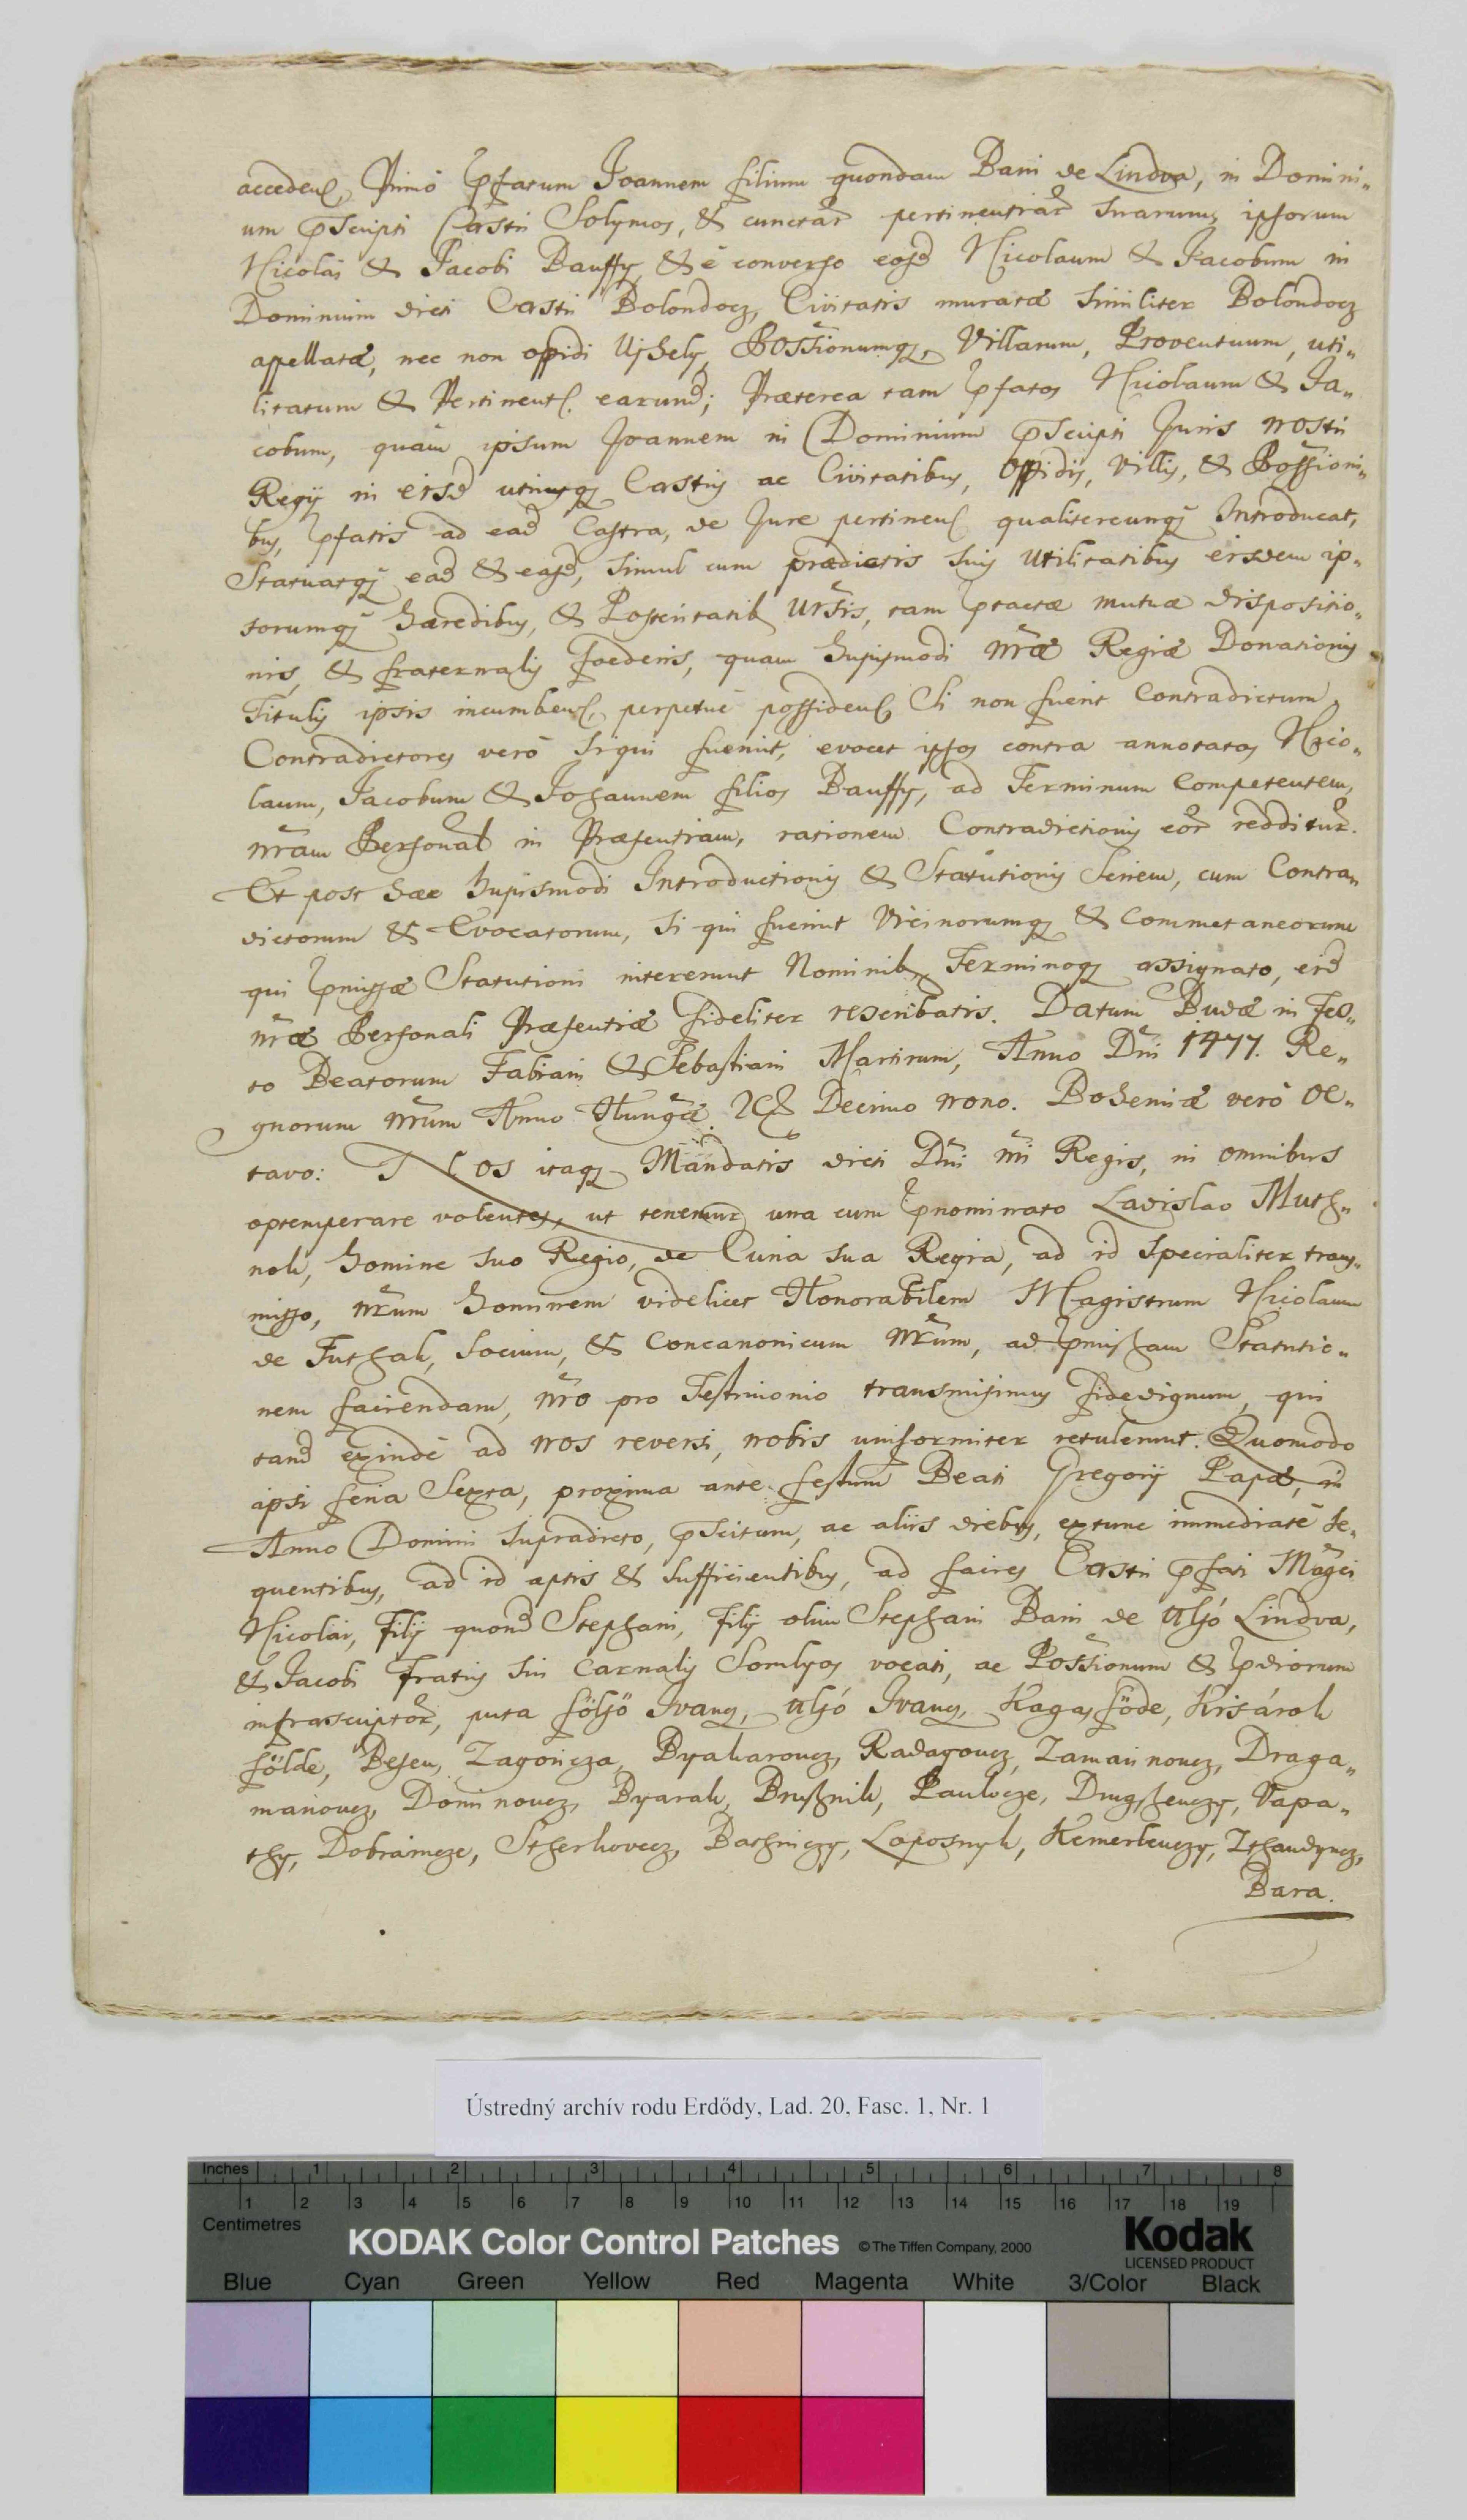 accedens, Primò pfatum Joannem filium quondam Bani de Lindva, in Domini„
um pscripti Castri Solymos, & cunctar pertinentiar suarumq ipsorum
Nicolai & Jacobi Banffy, & è converso eosd Nicolaum & Jacobum in
Dominium dicti Castri Bolondocz, Civitatis muratæ similiter Bolondocz
appellatæ, nec non oppidi Ujhely, Possionumq, Villarum, Proventuum, uti„
litatum & Pertinent. earund; Præterea tam pfatos Nicolaum & Ja„
cobum, quàm ipsum Joannem in Dominium pscripti Juris nostri
Regij in eisd utriusq Castris ac Civitatibus, Oppidis, Villis, & Possioni„
bus, pfatis ad ead Castra, de Jure pertinen qualitercunq Introducat,
Statuatq ead & easd, simul cum prædictis suis Utilitatibus eisdem ip„
sorumq Hæredibus, & Posteritatib Ursis, tam ptactæ mutuæ dispositio„
nis, & fraternalis foederis, quam hujusmodi nræ Regiæ Donationis
Titulis ipsis incumben, perpetuè possiden Si non fuerit Contradictum,
Contradictores verò siqui fuerint, evocet ipsos contra annotatos Nico„
laum, Jacobum & Johannem filios Banffy, ad Terminum Competentem,
nram Personal in Præsentiam, rationem Contradictionis eor redditur.
Et post hæc hujusmodi Introductionis & Statutionis Seriem, cum Contra„
dictorum & Evocatorum, si qui fuerint Vicinorumq & Commetaneorum
qui pmissæ Statutioni intererunt Nominib, Terminoq assignato, eid
nræ Personali Præsentiæ fideliter rescribatis. Datum Budæ in Fes„
to Beatorum Fabiani & Sebastiani Martirum, Anno Dni 1477. Re„
gnorum nrum Anno Hungæ. &c Decimo nono. Bohemiæ verò Oc„
tavo: Nos itaq Mandatis dicti Dni nri Regis, in omnibus
optemperare volentes, ut tenemur una cum pnominato Ladislao Muth„
noki, Homine suo Regio, de Curia sua Regia, ad id specialiter trans„
misso, nrum Hominem videlicet Honorabilem Magistrum Nicolaum
de Futhak, Socium, & Concanonicum nrum, ad pmissam Statutio„
nem faciendam, nro pro Testimonio transmisimus fidedignum, qui
tand exindè ad nos reversi, nobis uniformiter retulerunt. Quomodo
ipsi feria Sexta, proxima ante festum Beati Gregorij Papæ, in
Anno Domini supradicto, pscitum, ac aliis diebus, extunc immediatè se„
quentibus, ad id aptis & sufficientibus, ad facies Castri pfati Magci
Nicolai, Filij quond Stephani, Filij olim Stephani Bani de Alsó Lindva,
& Jacobi Fratris sui Carnalis Somlyos vocati, ac Possionum & pdiorum
infrascriptor, puta fölsö Ivancz, Alsó Ivancz, Kagasföde, Kisárok
földe, Besen, Zagoricza, Byakaroucz, Radagoucz, Zamarinoucz, Draga„
manoucz, Dominoucz, Byarak, Brusznik, Paulocze, Dragszenczy, Vapa„
thy, Dobraincze, Stherkovecz, Bathniczy, Loposnyk, Kemerlenczy, Zthandyncz,
Bara.
Ústredný archív rodu Erdődy, Lad. 20, Fasc. 1, Nr. 1
Inches 1 2 3 4 5 6 7 8
1 2 3 4 5 6 7 8 9 10 11 12 13 14 15 16 17 18 19
Centimetres
KODAK Color Control Patches © The Tiffen Company, 2000 Kodak
LICENSED PRODUCT
Blue Cyan Green Yellow Red Magenta White 3/Color Black